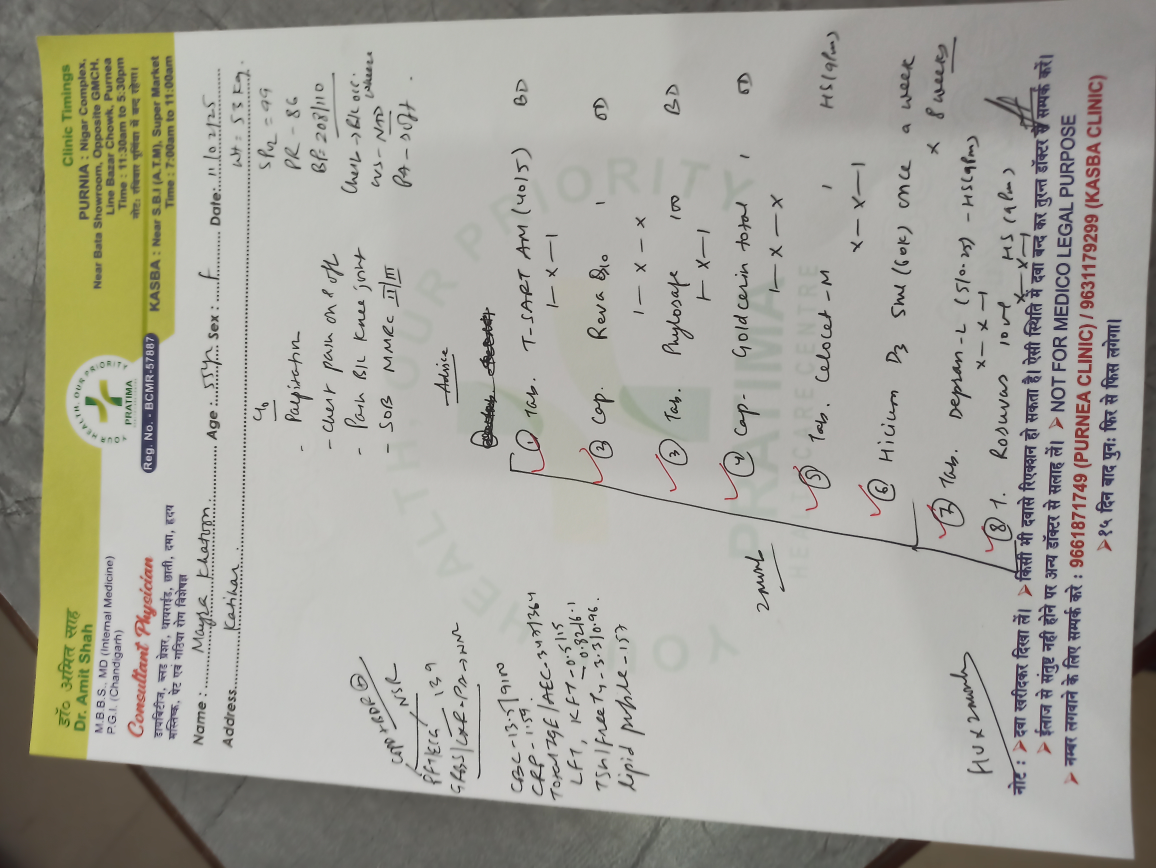 डॉ० अमित साह
Dr. Amit Shah
M.B.B.S., MD (Internal Medicine)
P.G.I. (Chandigarh)
Consultant Physician
डायबिटीज, ब्लड प्रेशर, थायराईड, छाती, दमा, हृदय
मस्तिष्क, पेट एवं गठिया रोग विशेषज्ञ
YOUR HEALTH, OUR PRIORITY
PRATIMA
Reg. No. - BCMR-57887
Clinic Timings
PURNIA : Nigar Complex,
Near Bata Showroom, Opposite GMCH,
Line Bazar Chowk, Purnea
Time : 11:30am to 5:30pm
नोट: रविवार पूर्णिया में बन्द रहेगा।
KASBA : Near S.B.I (A.T.M), Super Market
Time : 7:00am to 11:00am
Name : Mayra Khatoon Age : 55yr Sex : F Date: 11/02/25
Address Katihar
Wt = 53 Kg
SPO2 = 99
PR - 86
BP = 208/110
Chest → B/L occ. wheeze
CVS - NAD
PA - soft.
C/o
- Palpitation
- Chest pain on & off
- Pain B/L Knee joint
- SOB MMRC II/III
NSR
PFT/ECG
139
CBC - 13.7/9100
CRP - 1.59
Total IgE/AEC - 347/364
LFT, KFT - 0.5/15
TSH/freeT4 - 3.3/0.96.
lipid profile - 157
Advice
① Tab. T-SART AM (40/5) BD
1 - x - 1
② Cap. Reva Q10 1 OD
1 - x - x
③ Tab. Phylosafe 100 BD
1 - x - 1
④ Cap. Goldcerin total 1 OD
1 - x - x
⑤ Tab. Celocet-M 1 HS (9pm)
x - x - 1
⑥ Hicium D3 5ml (60K) once a week
x 8 weeks
⑦ Tab. Depran-L (5/0.25) - HS (9pm)
x - x - 1
⑧ T. Rosuvas 10mg HS (9pm)
x - x - 1
2 month
F/U x 2 month
YOUR HEALTH OUR PRIORITY
PRATIMA
HEALTH CARE CENTRE
नोट : ➤ दवा खरीदकर दिखा लें। ➤ किसी भी दवासे रिएक्शन हो सकता है। ऐसी स्थिति में दवा बन्द कर तुरन्त डॉक्टर से सम्पर्क करें।
➤ ईलाज से संतुष्ट नही होने पर अन्य डॉक्टर से सलाह लें। ➤ NOT FOR MEDICO LEGAL PURPOSE
➤ नम्बर लगवाने के लिए सम्पर्क करे : 9661871749 (PURNEA CLINIC) / 9631179299 (KASBA CLINIC)
➤ १५ दिन बाद पुनः फिर से फिस लगेगा।